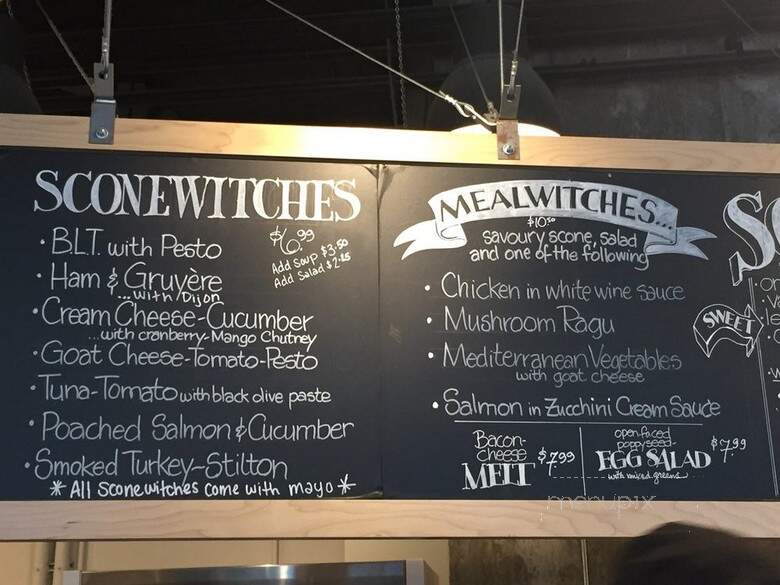 SCONEWITCHES
$6.99
Add Soup $3.50
Add Salad $2.85
• B.L.T. with Pesto
• Ham & Gruyère
...with Dijon
• Cream Cheese-Cucumber
...with cranberry-Mango Chutney
• Goat Cheese-Tomato-Pesto
• Tuna-Tomato with black olive paste
• Poached Salmon & Cucumber
• Smoked Turkey-Stilton
* All Sconewitches come with mayo *
MEALWITCHES...
savoury scone, salad
and one of the following
• Chicken in white wine sauce
• Mushroom Ragu
• Mediterranean Vegetables
with goat cheese
• Salmon in Zucchini Cream Sauce
Bacon-
cheese
MELT $7.99
open-faced
poppyseed-
EGG SALAD $7.99
with mixed greens
SWEET
menupix